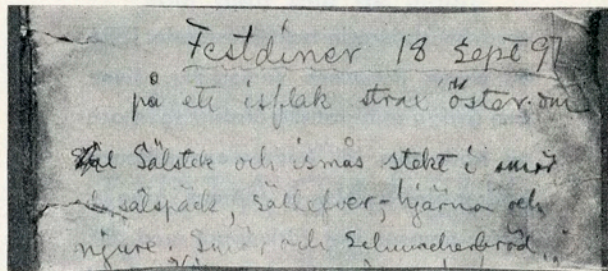 Festdiner 18 Sept 97
på ett isflak strax öster om
Sälstek och ismås stekt i smör
sälspäck, sällefver, hjärna och
njure. Smör och Schumacherbröd